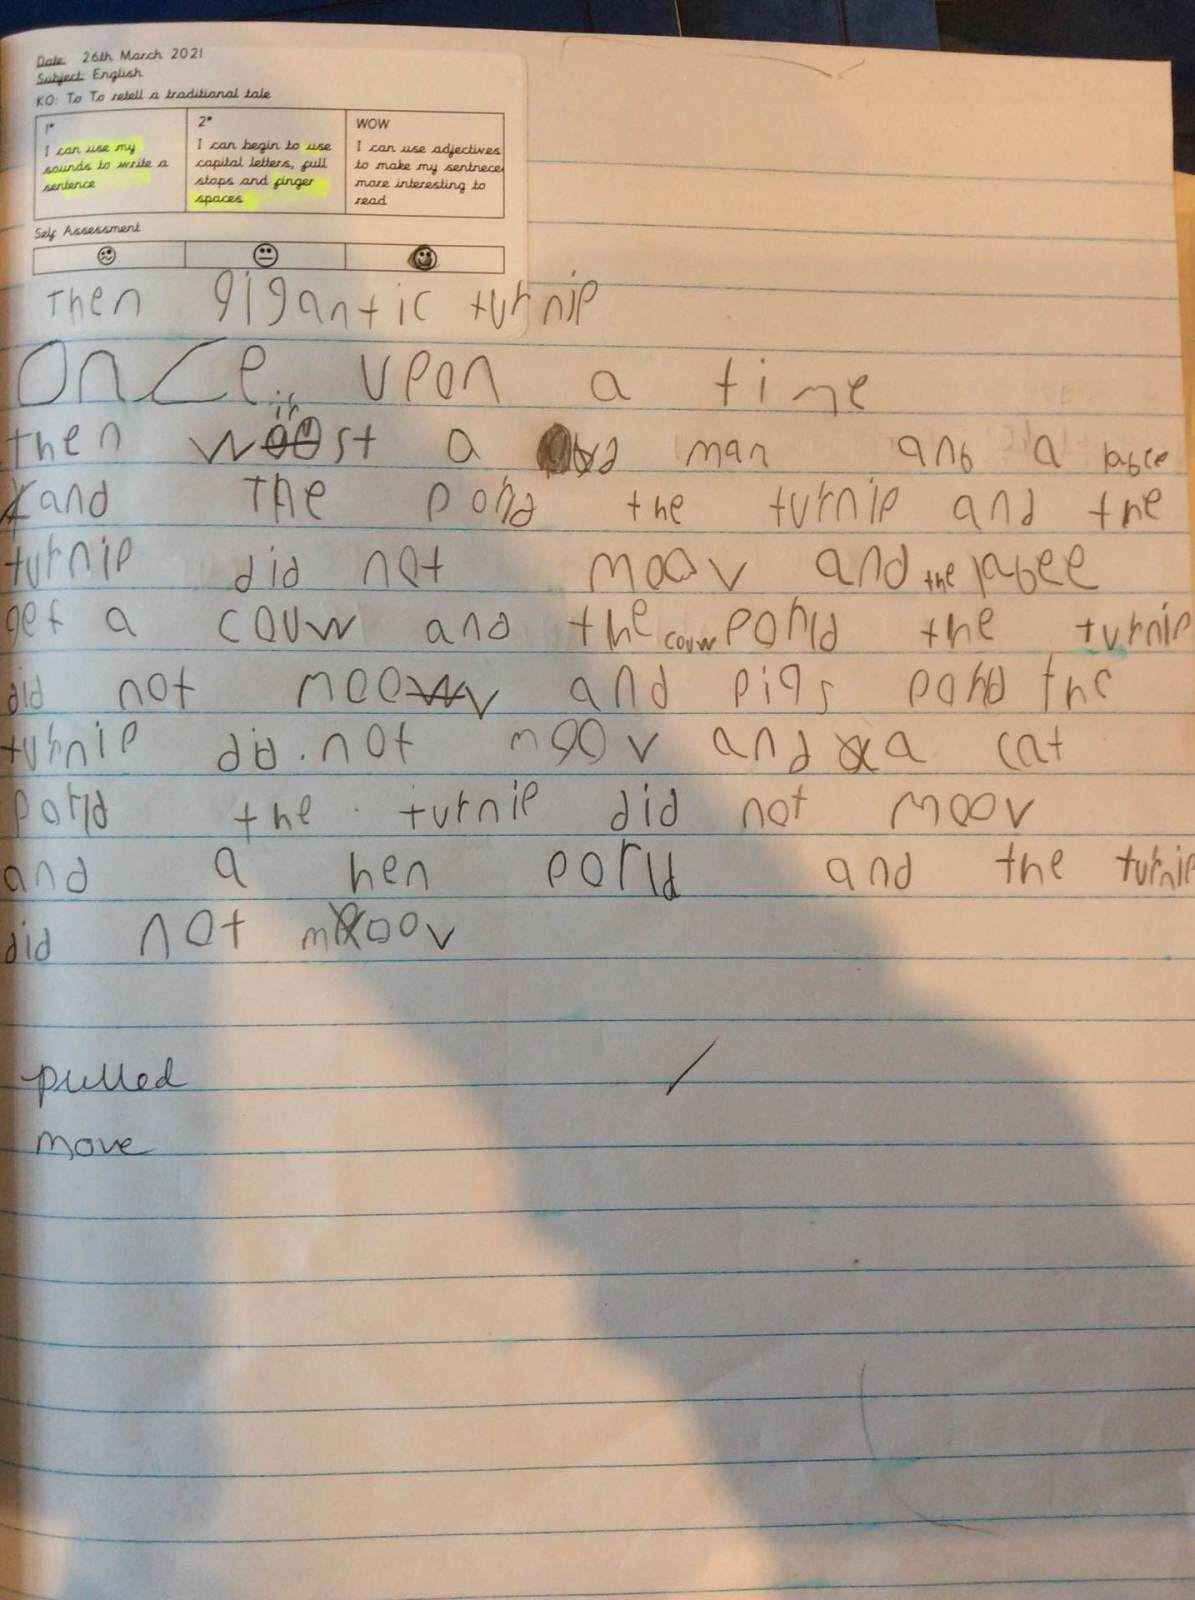 Date: 26th March 2021
Subject: English
KO: To To retell a traditional tale
1* 2* WOW
I can use my sounds to write a sentence
I can begin to use capital letters, full stops and finger spaces
I can use adjectives to make my sentnece more interesting to read
Self Assessment
Then gigantic turnip
Once upon a time
then a man anb a
and The porld the turnip and the
turnip did not moov and the labee
get a couw and the couw porld the turnip
did not moov and pigs porld the
turnip did. not moov and a cat
porld the turnip did not moov
and a hen porld and the turnip
did not moov
pulled
move